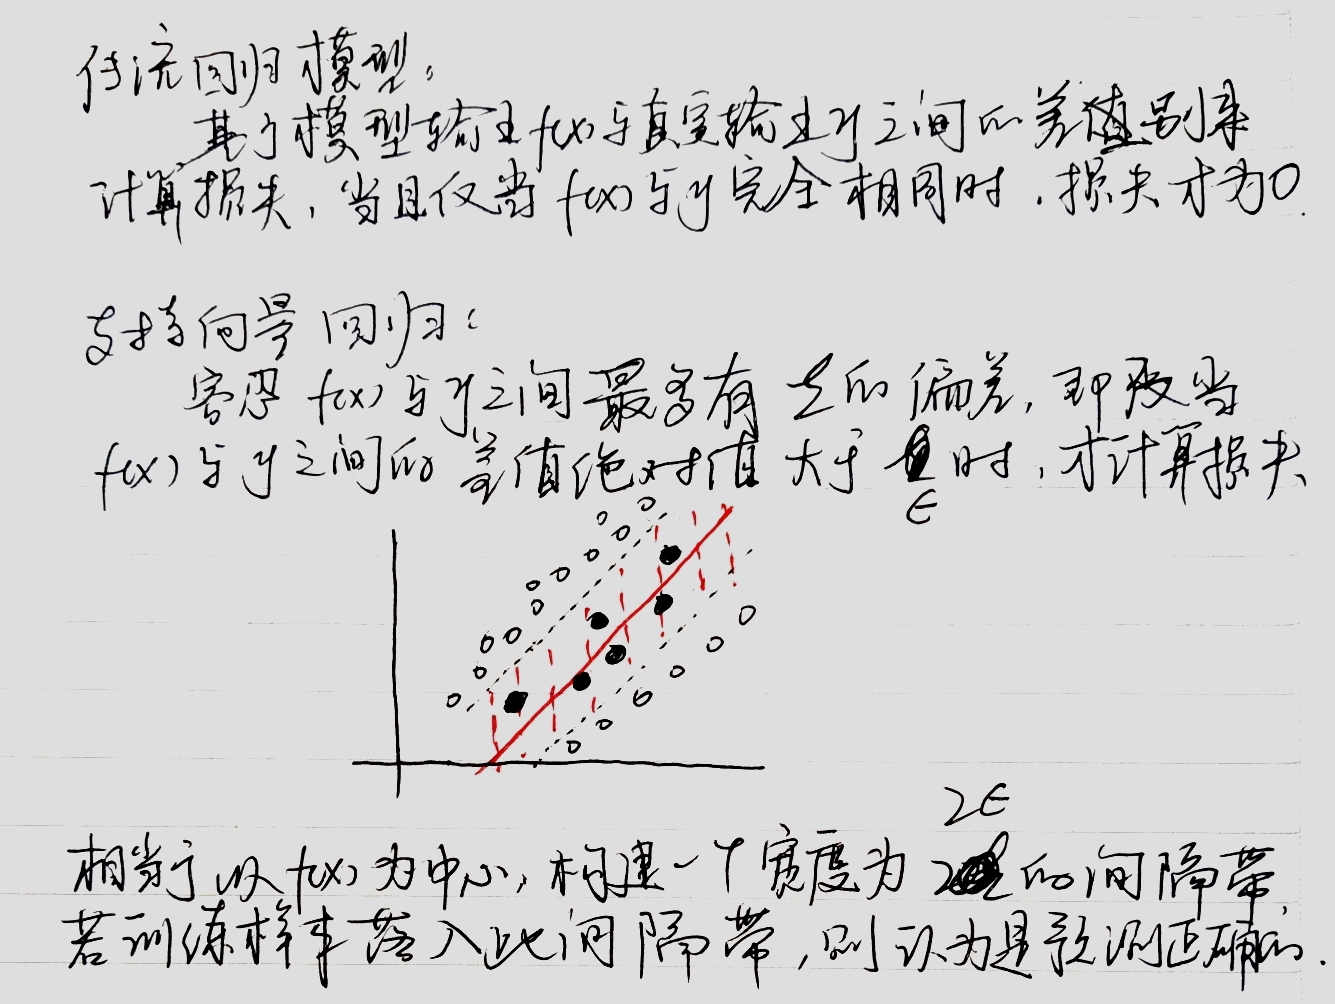 传统回归模型:
基于模型输出f(x)与真实输出y之间的差别来
计算损失,当且仅当f(x)与y完全相同时,损失才为0.
支持向量回归:
容忍f(x)与y之间最多有ε的偏差,即仅当
f(x)与y之间的差值绝对值大于ϵ时,才计算损失
相当于以f(x)为中心,构建一个宽度为2ϵ的间隔带,
若训练样本落入此间隔带,则认为是预测正确的.